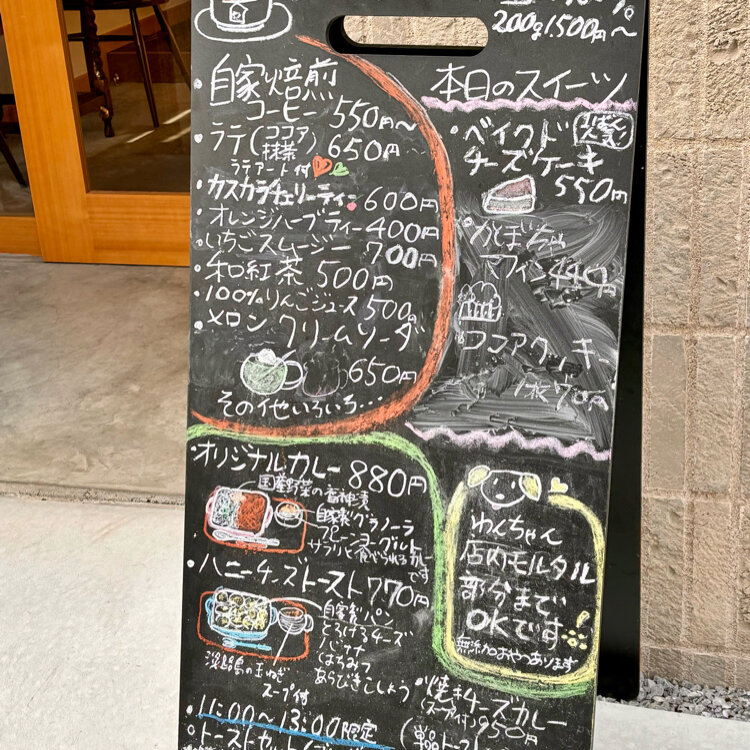 200g 1,500円～
自家焙煎
コーヒー 550円～
・ラテ(ココア 抹茶) 650円
ラテアート付
・カスカラチェリーティー 600円
・オレンジハーブティー 400円
・いちごスムージー 700円
・和紅茶 500円
・100%りんごジュース 500円
・メロンクリームソーダ
650円
その他いろいろ…
本日のスイーツ
・ベイクド
チーズケーキ
550円
・かぼちゃ
マフィン 440円
・ココアクッキー
1枚70円
・オリジナルカレー 880円
国産野菜の福神漬
自家製グラノーラ
プレーンヨーグルト
サラリと食べられるカレー
です
・ハニーチーズトースト 770円
自家製パン
とろけるチーズ
バナナ
はちみつ
あらびきこしょう
淡路島の玉ねぎ
スープ付
わんちゃん
店内モルタル
部分まで
OKです
無添加おやつあります
・焼きチーズカレー
(スープ付) 950円
・11:00～13:00限定
・トーストセット